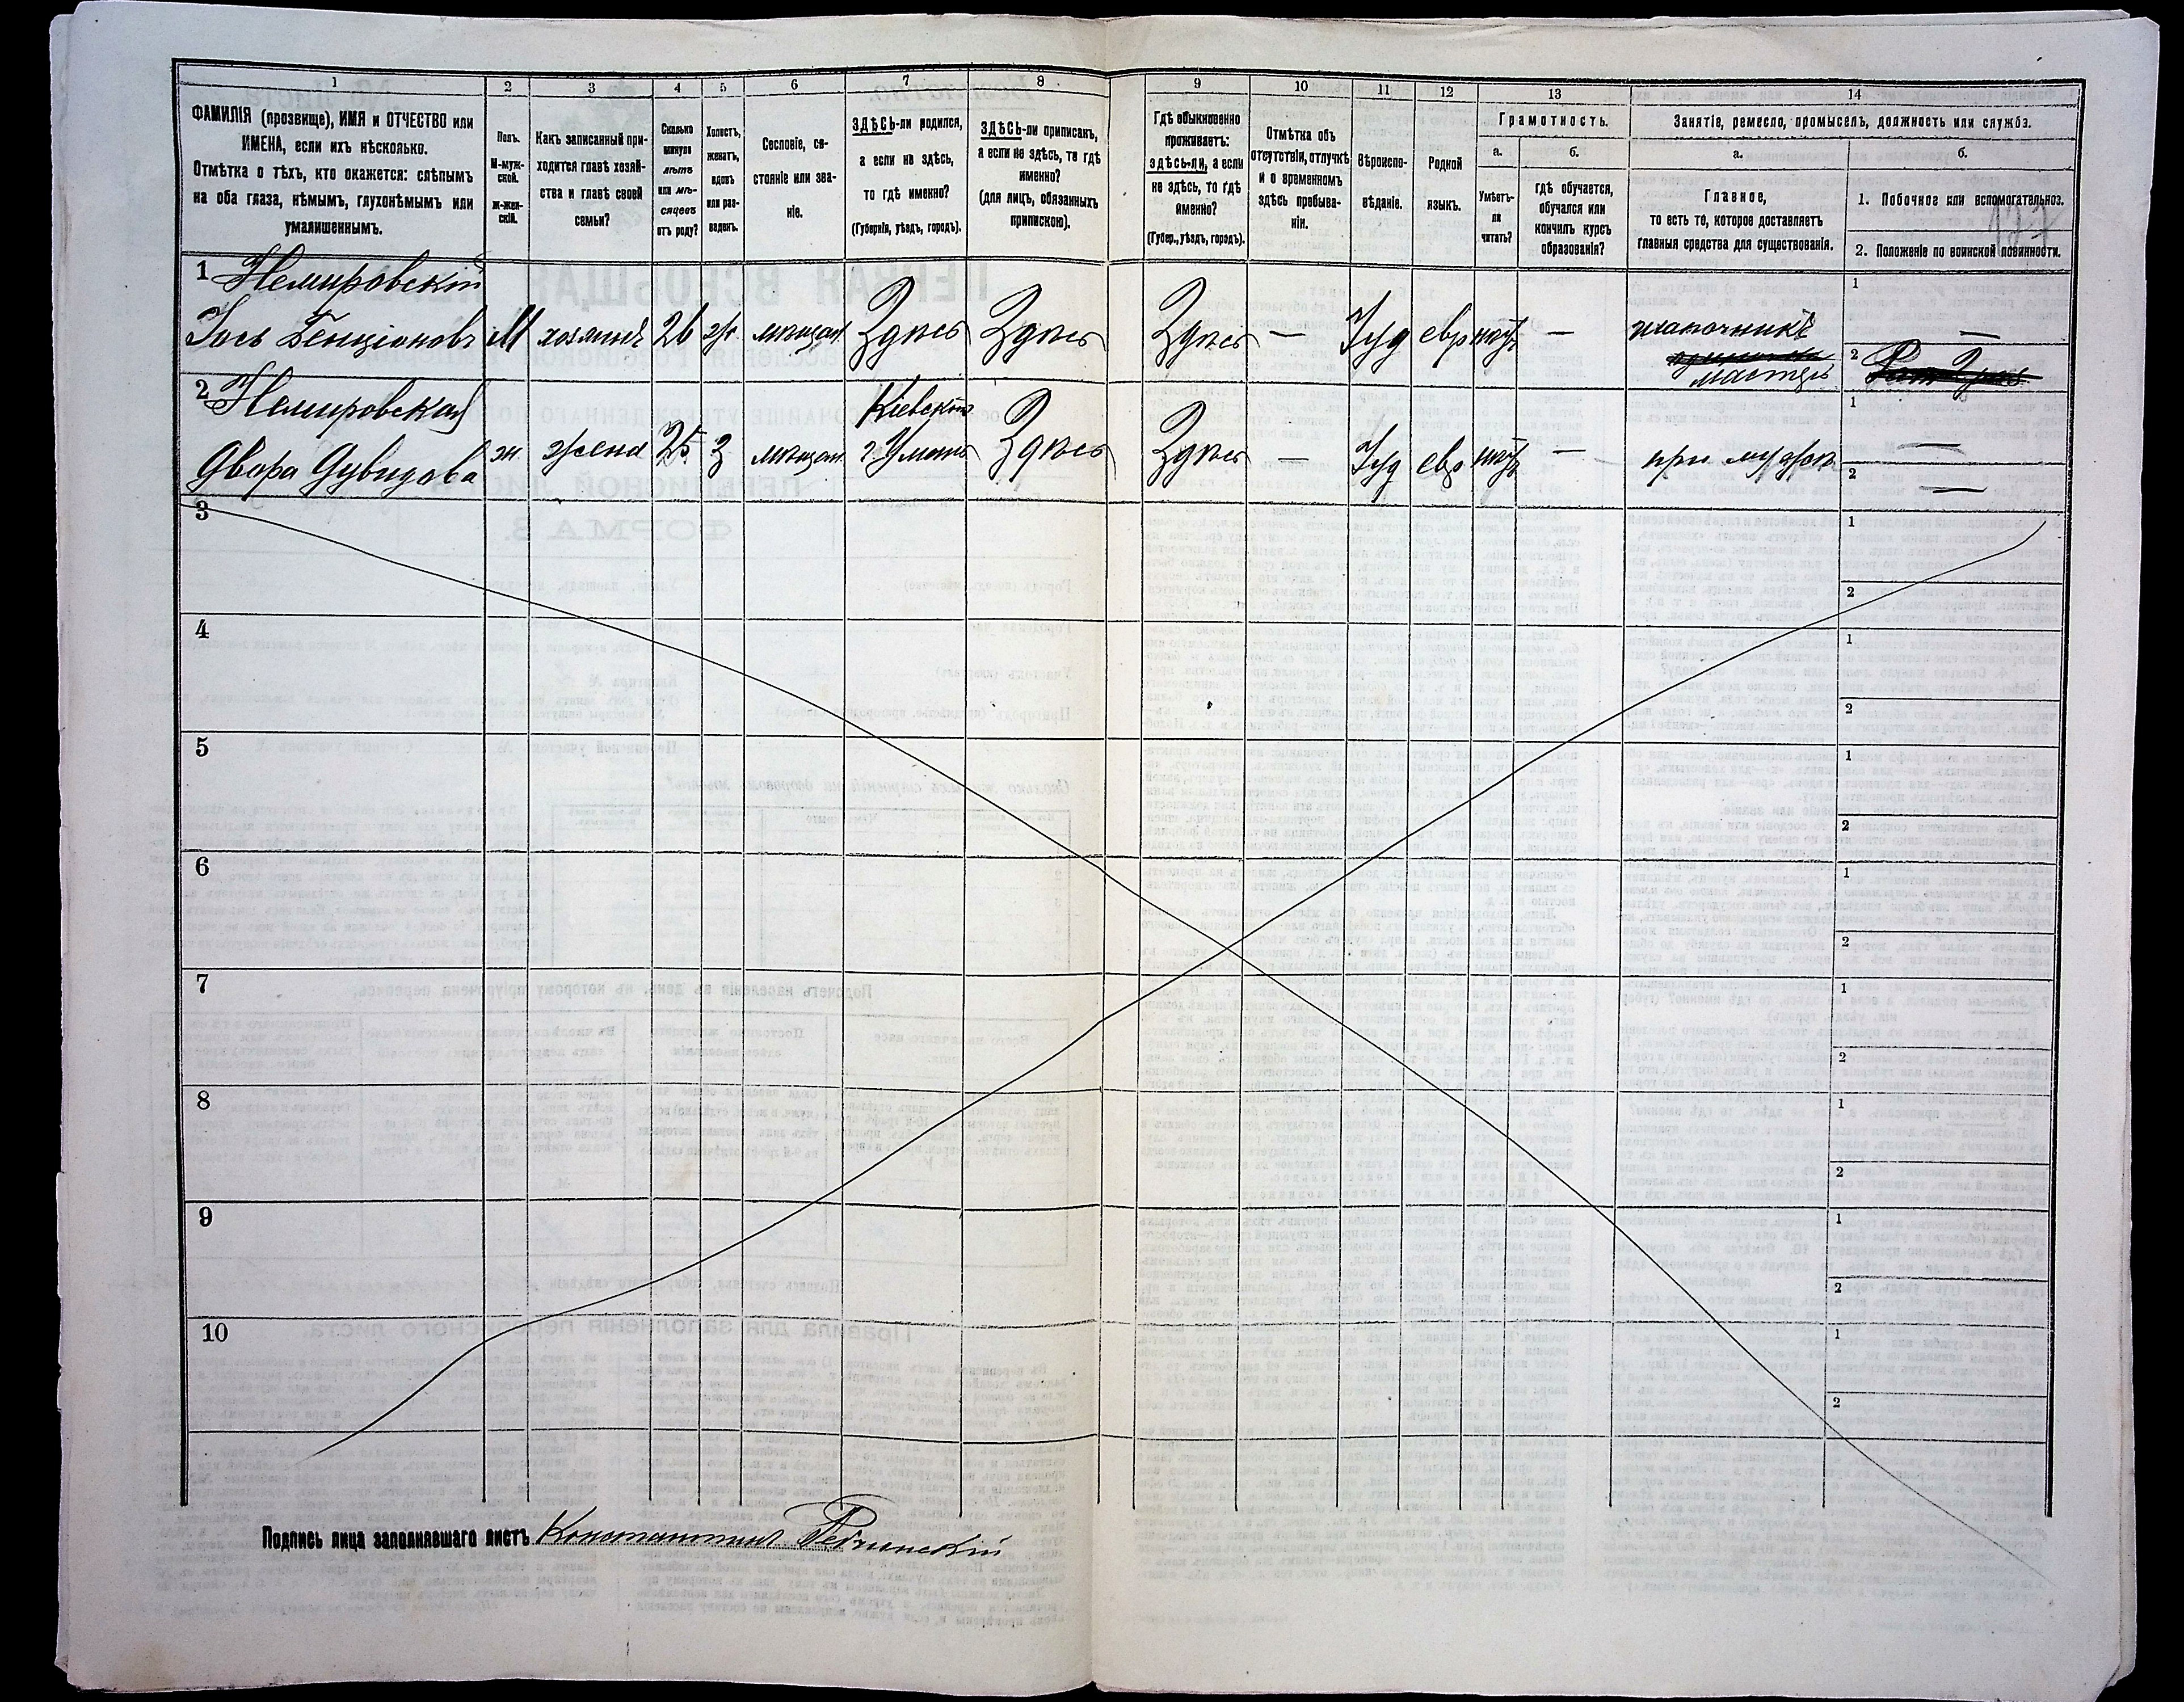 1 2 3 4 5 6 7 8 9 10 11 12 13 14
ФАМИЛІЯ (прозвище), ИМЯ и ОТЧЕСТВО или
ИМЕНА, если ихъ нѣсколько.
Отмѣтка о тѣхъ, кто окажется: слѣпымъ
на оба глаза, нѣмымъ, глухонѣмымъ или
умалишеннымъ.
Полъ.
М-муж-
ской.
ж-жен-
скій.
Какъ записанный при-
ходится главѣ хозяй-
ства и главѣ своей
семьи?
Сколько
минуло
лѣтъ
или мѣ-
сяцевъ
отъ роду?
Холостъ,
женатъ,
вдовъ
или раз-
веденъ.
Сословіе, со-
стояніе или зва-
ніе.
ЗДѢСЬ-ли родился,
а если не здѣсь,
то гдѣ именно?
(Губернія, уѣздъ, городъ).
ЗДѢСЬ-ли приписанъ,
а если не здѣсь, то гдѣ
именно?
(для лицъ, обязанныхъ
припискою).
Гдѣ обыкновенно
проживаетъ:
здѣсь-ли, а если
не здѣсь, то гдѣ
именно?
(Губер., уѣздъ, городъ).
Отмѣтка объ
отсутствіи, отлучкѣ
и о временномъ
здѣсь пребыва-
ніи.
Вѣроиспо-
вѣданіе.
Родной
языкъ.
Грамотность.
а.
Умѣетъ-
ли
читать?
б.
гдѣ обучается,
обучался или
кончилъ курсъ
образованія?
Занятіе, ремесло, промыселъ, должность или служба.
а.
Главное,
то есть то, которое доставляетъ
главныя средства для существованія.
б.
1. Побочное или вспомогательное.
2. Положеніе по воинской повинности.
177
1 Немировскій
Іось Бенціоновъ М хозяинъ 26 ж. мѣщан. Здѣсь Здѣсь Здѣсь — Іуд евр — шапочникъ 1 —
мастеръ 2
2 Немировская Кіевской
Двора Дувидова ж. жена 25 З мѣщан. г. Умань Здѣсь Здѣсь — Іуд евр — при мужѣ 1 —
2 —
3 1
2
4 1
2
5 1
2
6 1
2
7 1
2
8 1
2
9 1
2
10 1
2
Подпись лица заполнявшаго листъ Константинъ